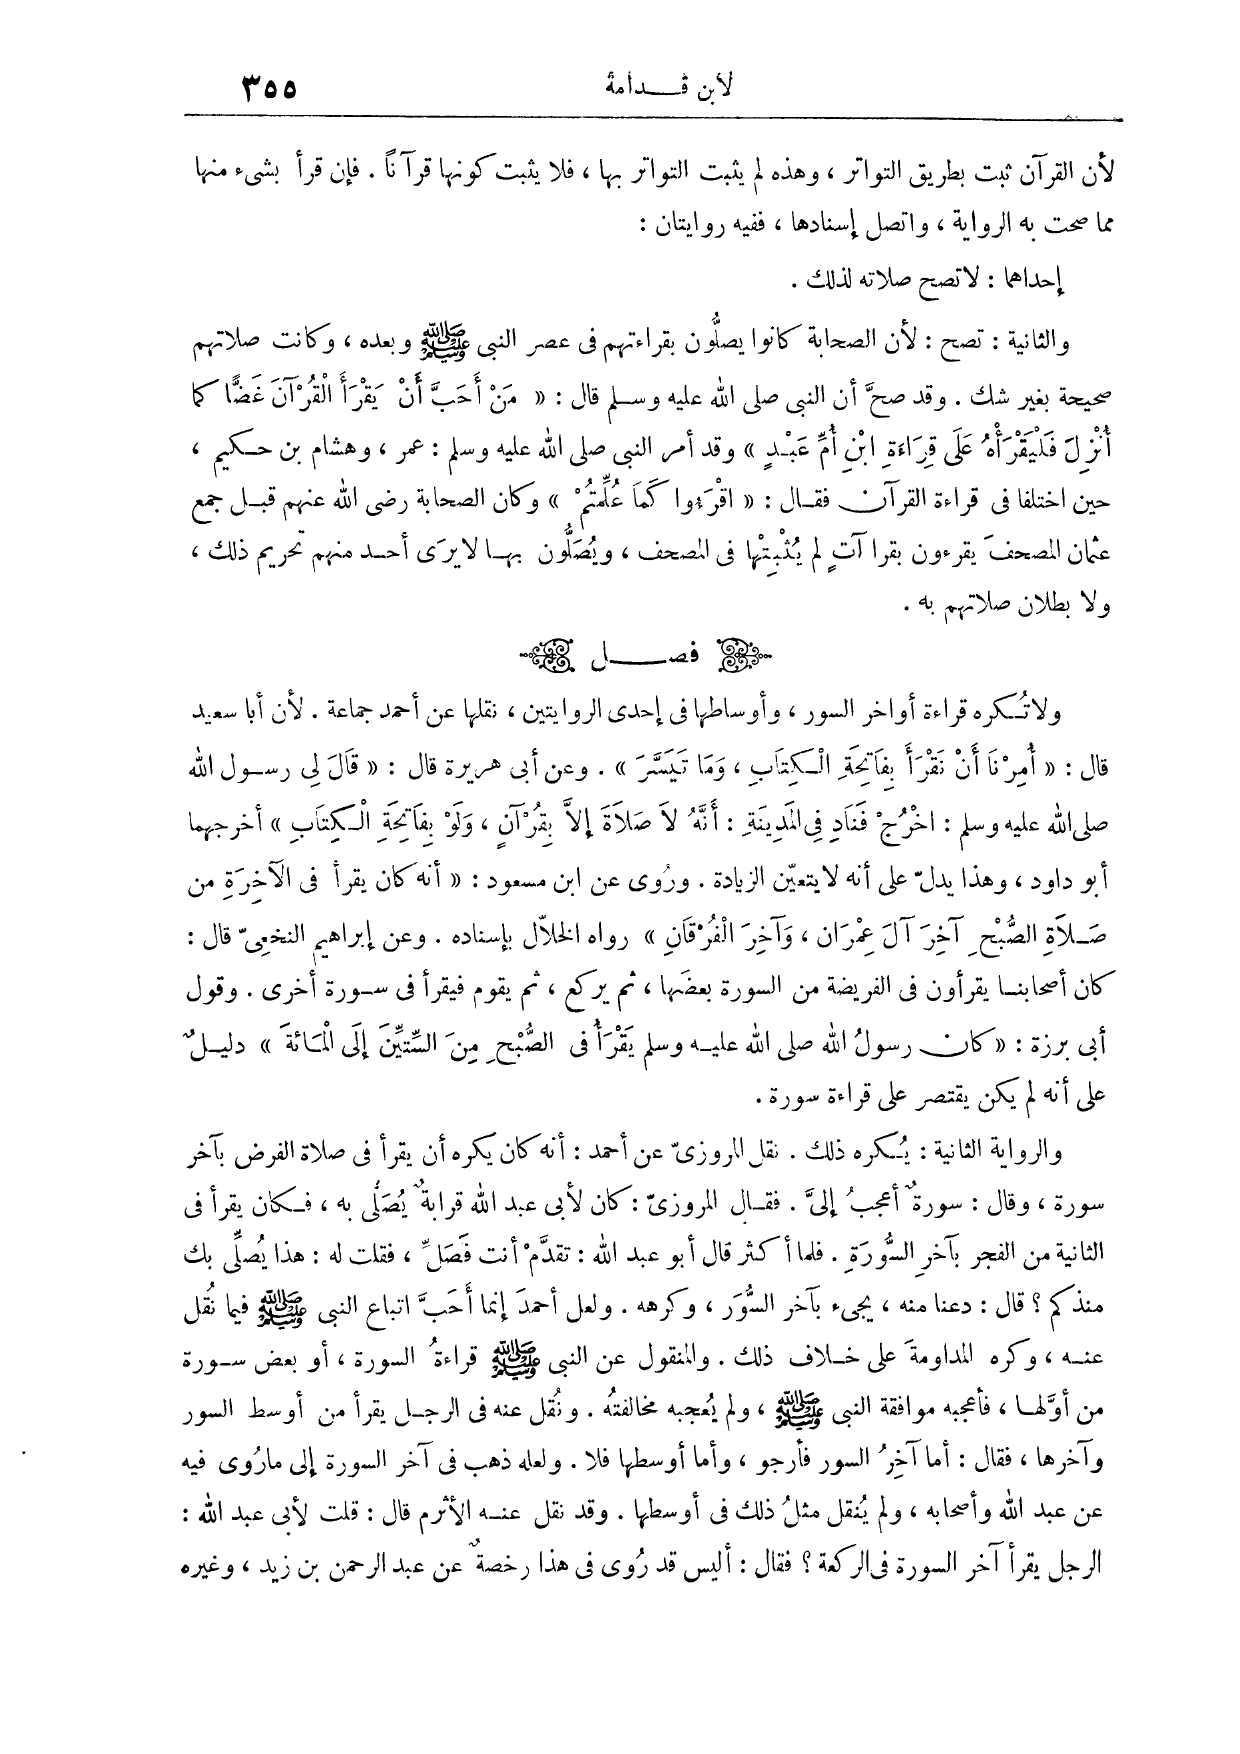 لابن قدامة ٣٥٥
لأن القرآن ثبت بطريق التواتر ، وهذه لم يثبت التواتر بها ، فلا يثبت كونها قرآناً . فإن قرأ بشىء منها
مما صحت به الرواية ، واتصل إسنادها ، ففيه روايتان :
إحداهما : لاتصح صلاته لذلك .
والثانية : تصح : لأن الصحابة كانوا يصلُّون بقراءتهم فى عصر النبى ﷺ وبعده ، وكانت صلاتهم
صحيحة بغير شك . وقد صحَّ أن النبى صلى الله عليه وسلم قال : « مَنْ أَحَبَّ أَنْ يَقْرَأَ الْقُرْآنَ غَضًّا كما
أُنْزِلَ فَلْيَقْرَأْهُ عَلَى قِرَاءَةِ ابْنِ أُمِّ عَبْدٍ » وقد أمر النبى صلى الله عليه وسلم : عمر ، وهشام بن حكيم ،
حين اختلفا فى قراءة القرآن فقال : « اقْرَءُوا كَمَا عُلِّمْتُمْ » وكان الصحابة رضى الله عنهم قبل جمع
عثمان المصحفَ يقرءون بقرا آتٍ لم يُثْبِتْها فى المصحف ، ويُصَلُّون بها لايرَى أحد منهم تحريم ذلك ،
ولا بطلان صلاتهم به .
فصل
ولاتُكره قراءة أواخر السور ، وأوساطها فى إحدى الروايتين ، نقلها عن أحمد جماعة . لأن أبا سعيد
قال : « أُمِرْنَا أَنْ نَقْرَأَ بِفَاتِحَةِ الْكِتَابِ ، وَمَا تَيَسَّرَ » . وعن أبى هريرة قال : « قَالَ لِى رسول الله
صلى الله عليه وسلم : اخْرُجْ فَنَادِ فِى المَدِينَةِ : أَنَّهُ لاَ صَلاَةَ إِلاَّ بِقُرْآنٍ ، وَلَوْ بِفَاتِحَةِ الْكِتَابِ » أخرجهما
أبو داود ، وهذا يدلّ على أنه لايتعيّن الزيادة . ورُوى عن ابن مسعود : « أنه كان يقرأ فى الآخِرَةِ من
صَلاَةِ الصُّبْحِ آخِرَ آلَ عِمْرَان ، وَآخِرَ الْفُرْقَانِ » رواه الخلاّل بإسناده . وعن إبراهيم النخعىّ قال :
كان أصحابنا يقرأون فى الفريضة من السورة بعضَها ، ثم يركع ، ثم يقوم فيقرأ فى سورة أخرى . وقول
أبى برزة : « كان رسولُ الله صلى الله عليه وسلم يَقْرَأُ فى الصُّبْحِ مِنَ السِّتِّينَ إِلَى الْمَائَةَ » دليلٌ
على أنه لم يكن يقتصر على قراءة سورة .
والرواية الثانية : يُكره ذلك . نقل المروزىّ عن أحمد : أنه كان يكره أن يقرأ فى صلاة الفرض بآخر
سورة ، وقال : سورةٌ أعجبُ إلىَّ . فقال المروزىّ : كان لأبى عبد الله قرابةٌ يُصَلِّى به ، فكان يقرأ فى
الثانية من الفجر بآخر السُّورَةِ . فلما أكثر قال أبو عبد الله : تقدَّمْ أنت فَصَلِّ ، فقلت له : هذا يُصلِّى بك
منذكم ؟ قال : دعنا منه ، يجىء بآخر السُّوَر ، وكرهه . ولعل أحمدَ إنما أَحَبَّ اتباع النبى ﷺ فيما نُقل
عنه ، وكره المداومةَ على خلاف ذلك . والمنقول عن النبى ﷺ قراءةُ السورة ، أو بعض سورة
من أوّلها ، فأعجبه موافقة النبى ﷺ ، ولم يُعجبه مخالفتُه . ونُقل عنه فى الرجل يقرأ من أوسط السور
وآخرها ، فقال : أما آخِرُ السور فأرجو ، وأما أوسطها فلا . ولعله ذهب فى آخر السورة إلى مارُوى فيه
عن عبد الله وأصحابه ، ولم يُنقل مثلُ ذلك فى أوسطها . وقد نقل عنه الأثرم قال : قلت لأبى عبد الله :
الرجل يقرأ آخر السورة فى الركعة ؟ فقال : أليس قد رُوى فى هذا رخصةٌ عن عبد الرحمن بن زيد ، وغيره